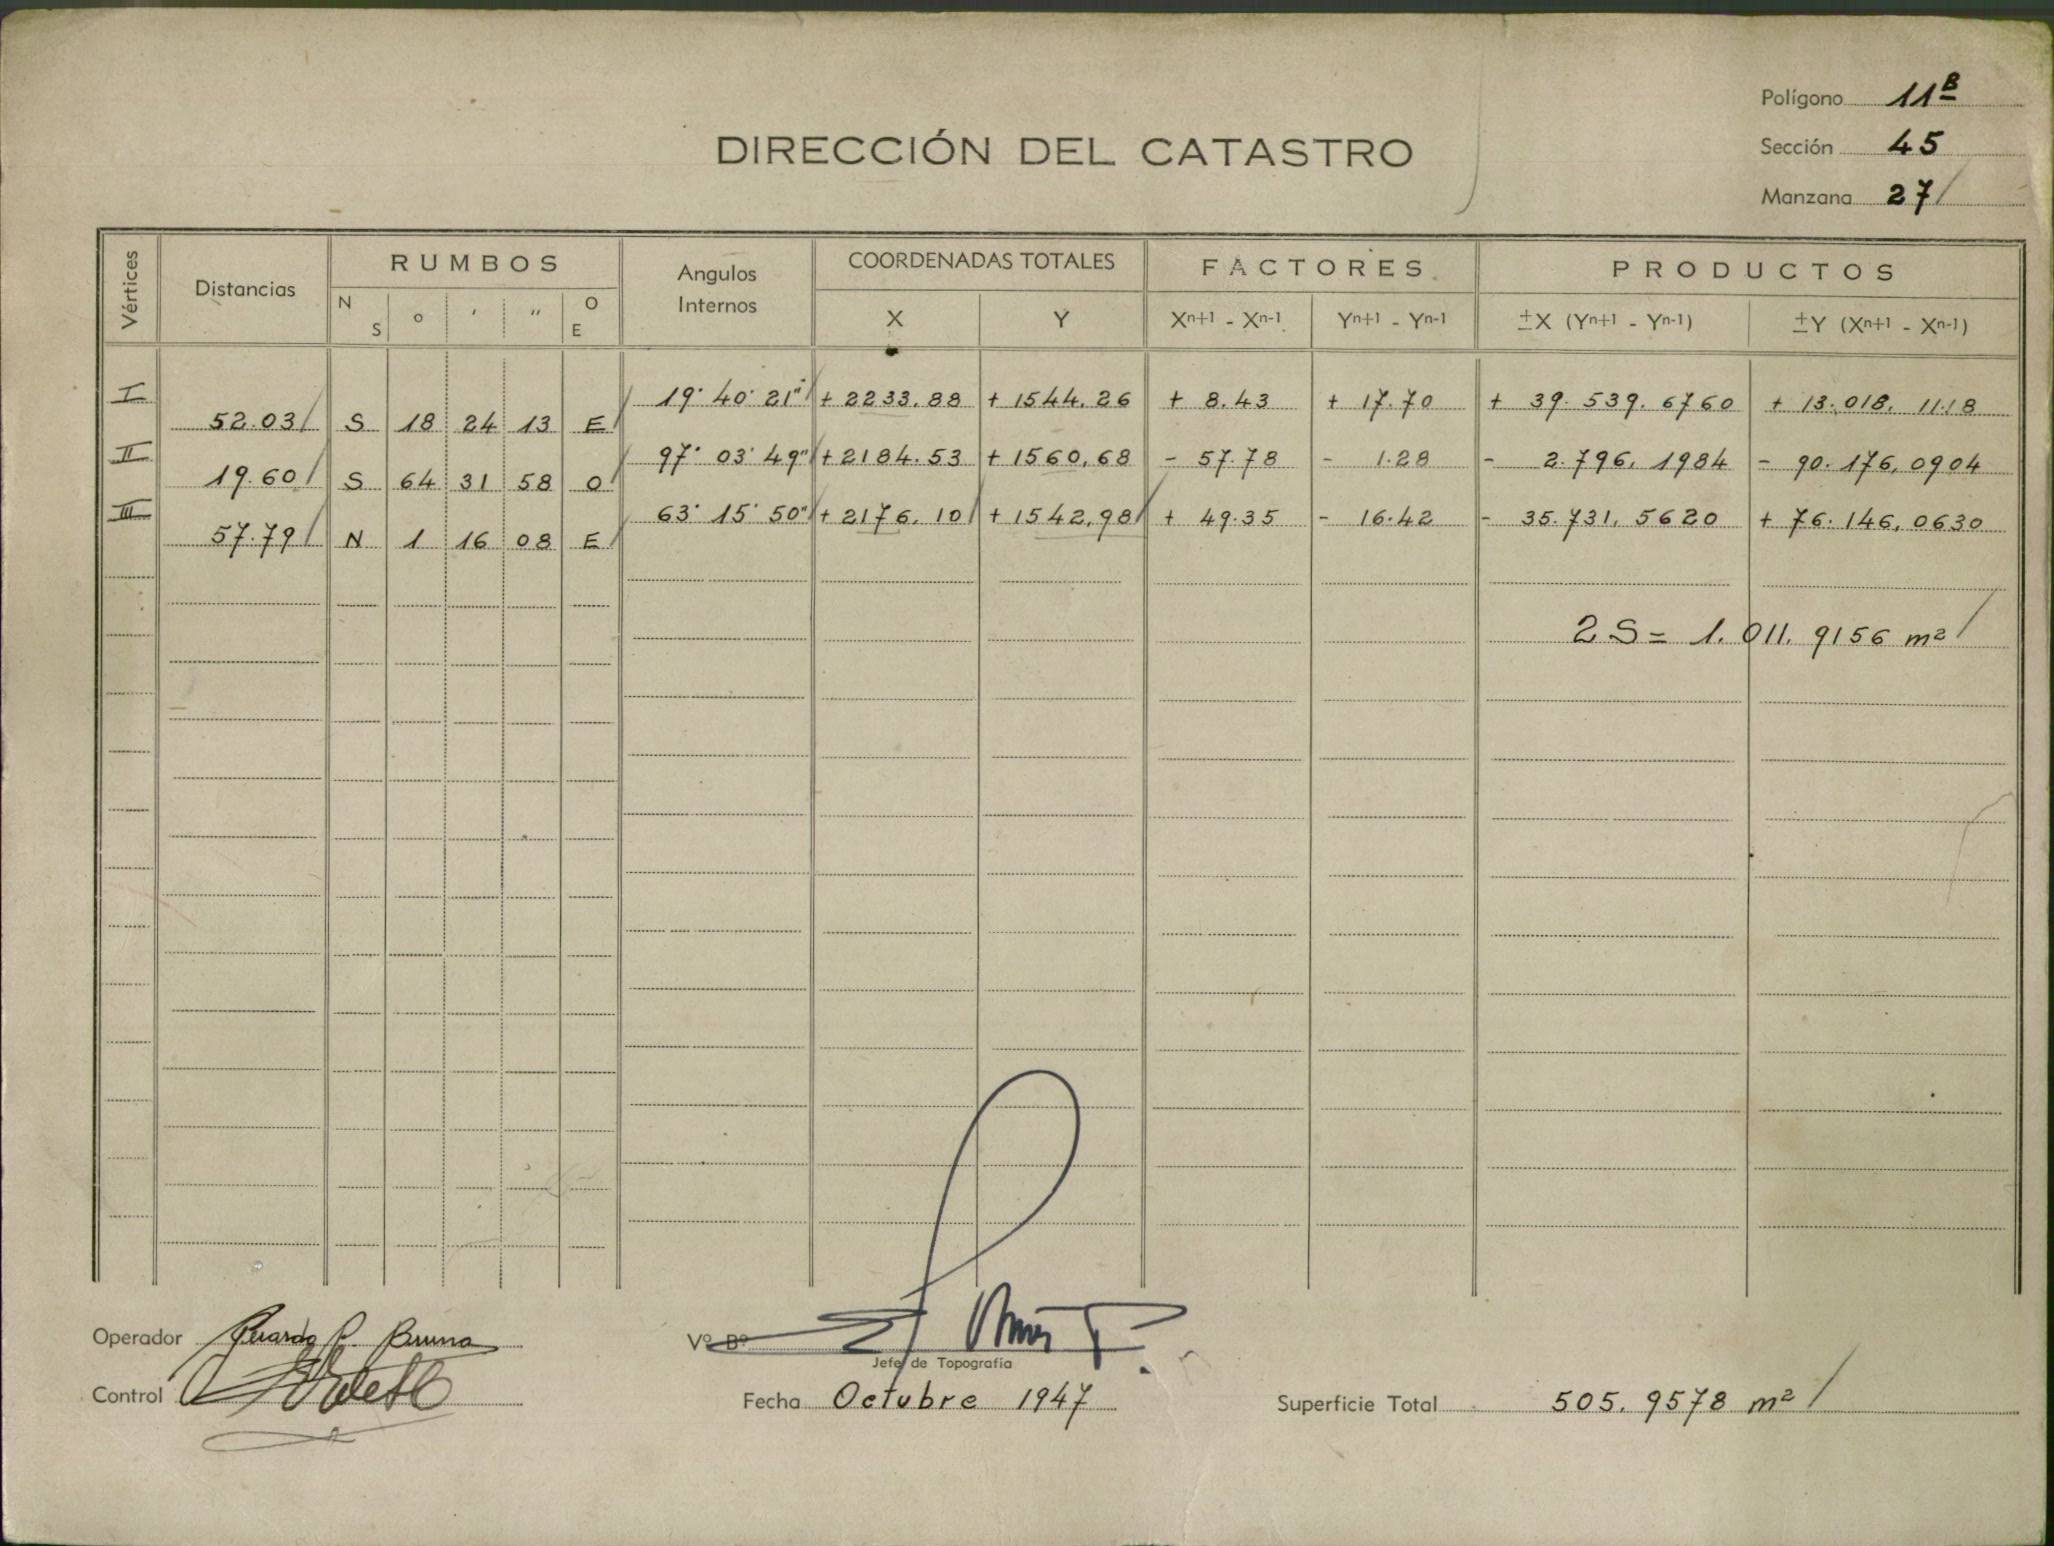 Polígono 11B
DIRECCIÓN DEL CATASTRO
Sección 45
Manzana 27
Vértices Distancias RUMBOS Angulos Internos COORDENADAS TOTALES FACTORES PRODUCTOS
N S ° ′ ″ O E X Y Xn+1 - Xn-1 Yn+1 - Yn-1 ±X (Yn+1 - Yn-1) ±Y (Xn+1 - Xn-1)
I 19° 40' 21" + 2233.88 + 1544.26 + 8.43 + 17.70 + 39.539.6760 + 13.018.1118
52.03 S 18 24 13 E
II 97° 03' 49" + 2184.53 + 1560,68 - 57.78 - 1.28 - 2.796,1984 - 90.176,0904
19.60 S 64 31 58 O
III 63° 15' 50" + 2176.10 + 1542,98 + 49.35 - 16.42 - 35.731,5620 + 76.146,0630
57.79 N 1 16 08 E
2S = 1.011.9156 m²
Operador Bruna Vº Bº
Jefe de Topografía
Control Fecha Octubre 1947 Superficie Total 505.9578 m²